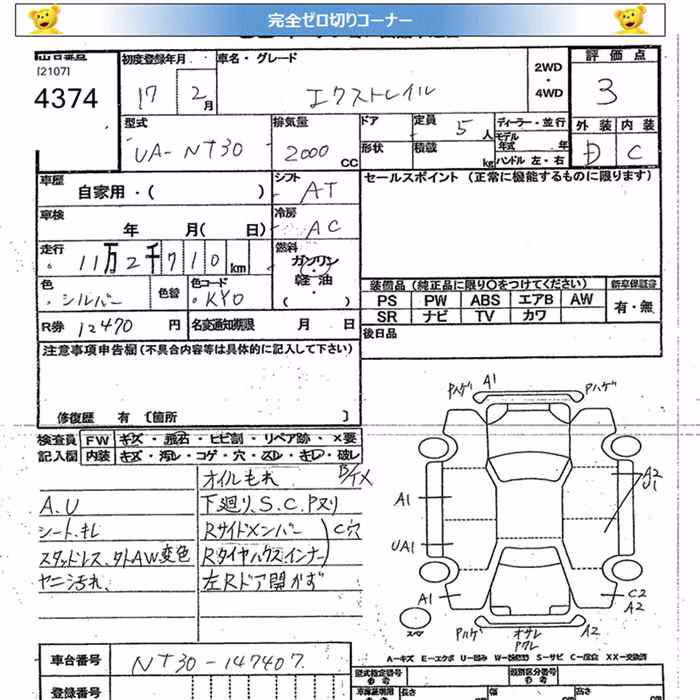 完全ゼロ切りコーナー
出品番号
[2107]
4374
初度登録年月
17 2月
車名・グレード
エクストレイル
2WD
・
4WD
評価点
3
外装 内装
D C
型式
UA-NT30
排気量
2000 CC
ドア
定員 5 人
形状
積載 kg
ディーラー・並行
モデル年式 年
ハンドル 左・右
車歴
自家用・( )
シフト
AT
車検
年 月( 日)
冷房
AC
走行
11万2千710 km
燃料
ガソリン
軽油
・( )
色
シルバー
色替
色コード
KY0
R券 12470 円
名変通知期限 月 日
セールスポイント (正常に機能するものに限ります)
装備品(純正品に限り○をつけてください)
新車保証書
PS PW ABS エアB AW
SR ナビ TV カワ
有・無
後日品
注意事項申告欄(不具合内容等は具体的に記入して下さい)
修復歴 有 〔箇所 〕
検査員記入欄
FW キズ・飛石・ヒビ割・リペア跡・×要
内装 キズ・汚レ・コゲ・穴・スレ・キレ・破レ
オイルもれ
A.U
下廻り、S.C.Pヌリ
シート、キレ
Rサイドメンバー
C穴
スタッドレス、タトAW変色
Rタイヤハウスインナー
ヤニ汚れ、
左Rドア開かず
Pハゲ A1 Pハゲ
A1
A2
U1
UA1
A1
C2
A2
スペア
Pハゲ オサレ A2
Pワレ
A-キズ E-エクボ U-凹み S-サビ XX-交換済
車台番号
NT30-147407
登録番号
型式指定番号
類別区分番号
長さ
幅
高さ